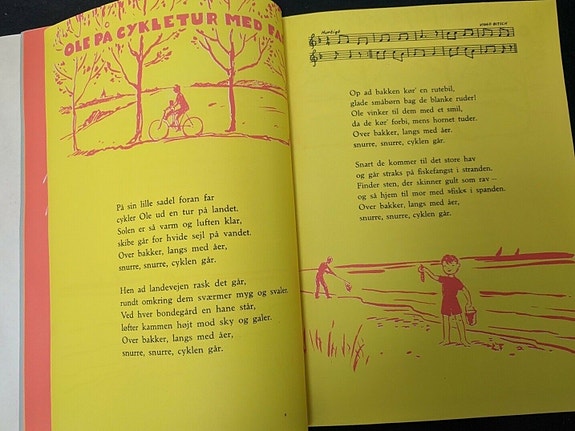 OLE PÅ CYKLETUR MED FA
På sin lille sadel foran far
cykler Ole ud en tur på landet.
Solen er så varm og luften klar,
skibe går for hvide sejl på vandet.
Over bakker, langs med åer,
snurre, snurre, cyklen går.
Hen ad landevejen rask det går,
rundt omkring dem sværmer myg og svaler.
Ved hver bondegård en hane står,
løfter kammen højt mod sky og galer.
Over bakker, langs med åer,
snurre, snurre, cyklen går.
Op ad bakken kør' en rutebil,
glade småbørn bag de blanke ruder!
Ole vinker til dem med et smil,
da de kør' forbi, mens hornet tuder.
Over bakker, langs med åer,
snurre, snurre, cyklen går.
Snart de kommer til det store hav
og går straks på fiskefangst i stranden.
Finder sten, der skinner gult som rav —
og så hjem til mor med »fisk« i spanden.
Over bakker, langs med åer,
snurre, snurre, cyklen går.